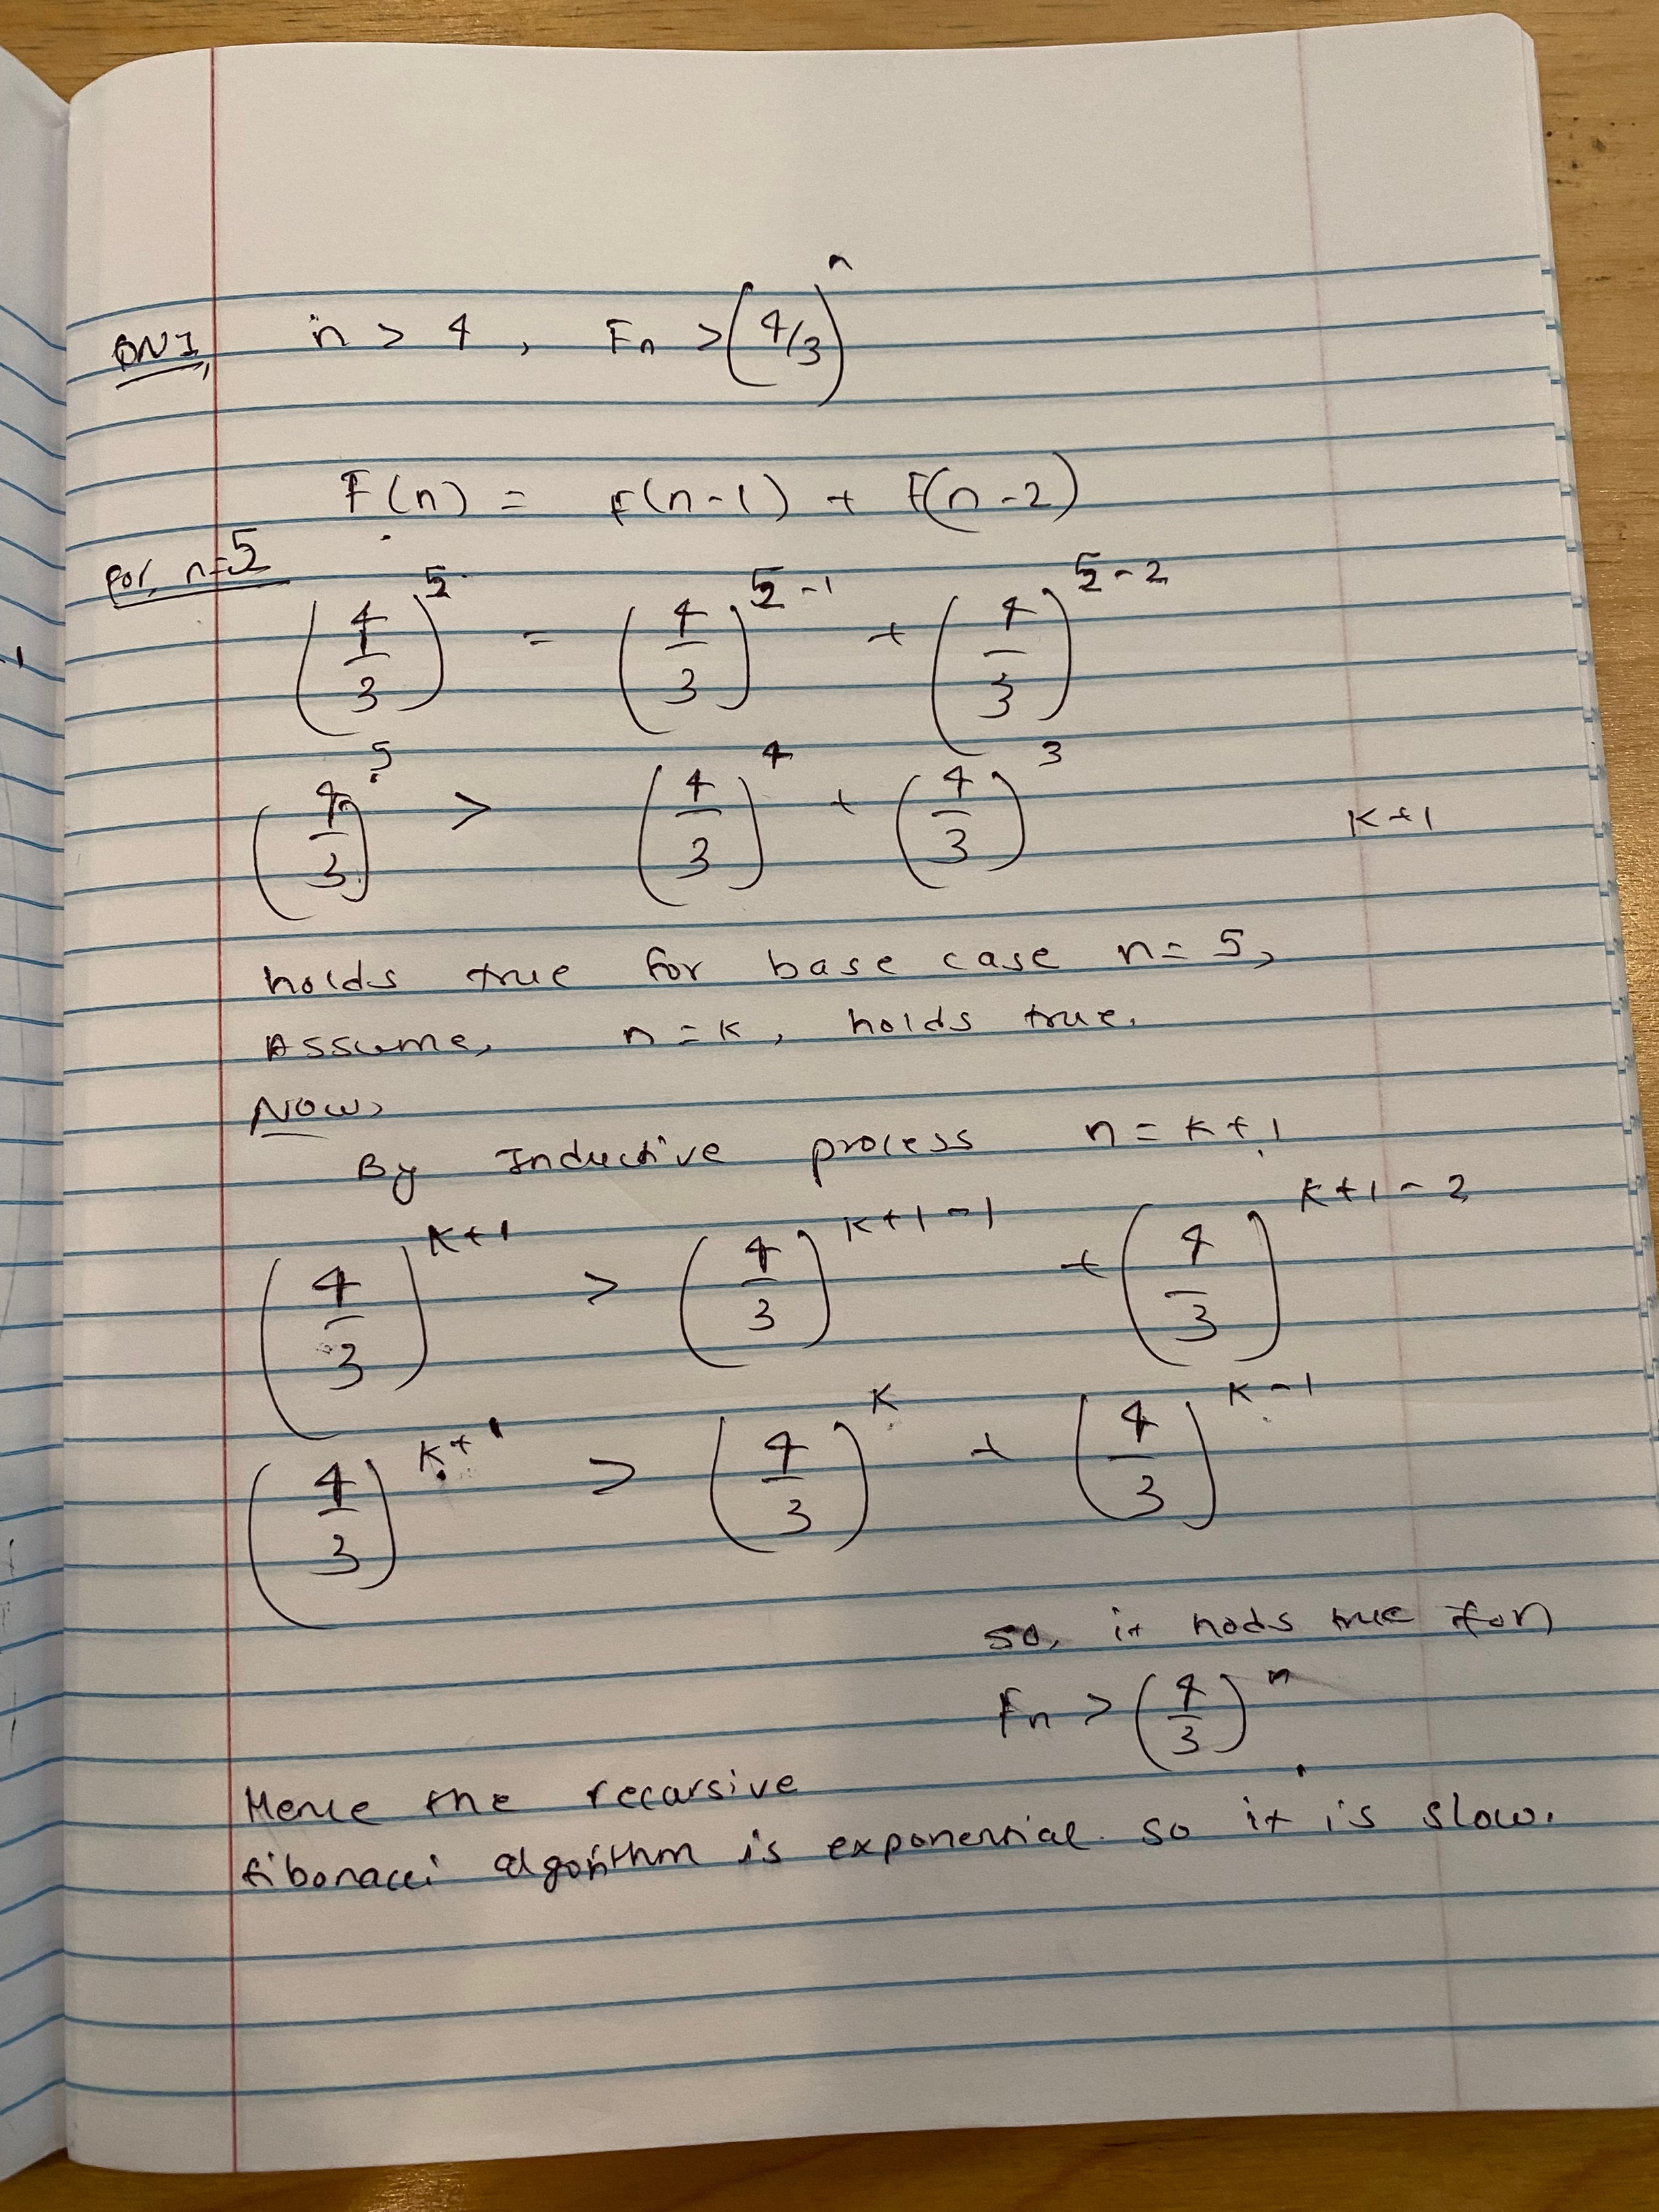 QN1, n > 4 , Fn > (4/3)^n
F(n) = F(n-1) + F(n-2)
for, n=5
(4/3)^5 = (4/3)^5-1 + (4/3)^5-2
(4/3)^5 > (4/3)^4 + (4/3)^3
K+1
holds true for base case n=5,
Assume, n=K, holds true.
Now,
By Inductive process n = K+1
(4/3)^K+1 > (4/3)^K+1-1 + (4/3)^K+1-2
(4/3)^K+1 > (4/3)^K + (4/3)^K-1
so, it hods true for
Fn > (4/3)^n
Hence the recursive
fibonacci algorithm is exponential. so it is slow.